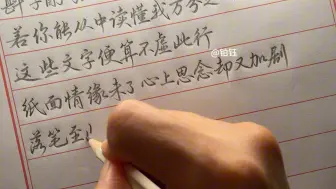 若你能从中读懂我万分之
这些文字便算不虚此行
@铂钰
纸面情缘未了心上思念却又加剧
落笔至此